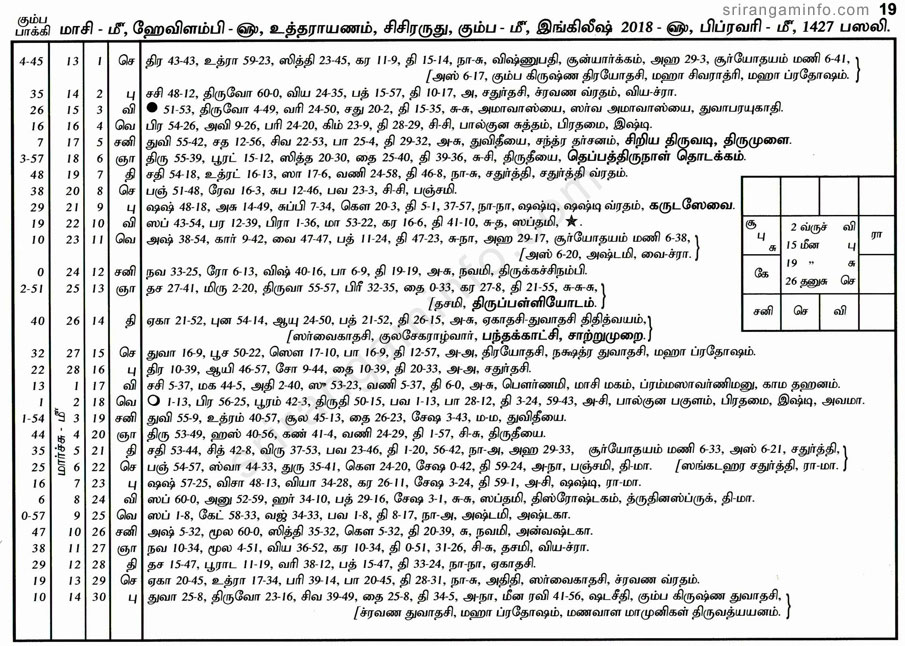 srirangaminfo.com 19
கும்ப பாக்கி மாசி - மீ, ஹேவிளம்பி - ௵, உத்தராயணம், சிசிரருது, கும்ப - மீ, இங்கிலீஷ் 2018 - ௵, பிப்ரவரி - மீ, 1427 பஸலி.
4-45 13 1 செ திர 43-43, உத்ரா 59-23, ஸித்தி 23-45, கர 11-9, தி 15-14, நா-சு, விஷ்ணுபதி, சூன்யார்க்கம், அஹ 29-3, சூர்யோதயம் மணி 6-41,
[அஸ் 6-17, கும்ப கிருஷ்ண திரயோதசி, மஹா சிவராத்ரி, மஹா ப்ரதோஷம்.
35 14 2 பு சசி 48-12, திருவோ 60-0, விய 24-35, பத் 15-57, தி 10-17, அ, சதுர்தசி, ச்ரவண வ்ரதம், விய-ச்ரா.
26 15 3 வி ● 51-53, திருவோ 4-49, வரி 24-50, சது 20-2, தி 15-35, சு-சு, அமாவாஸ்யை, ஸர்வ அமாவாஸ்யை, துவாபரயுகாதி.
16 16 4 வெ பிர 54-26, அவி 9-26, பரி 24-20, கிம் 23-9, தி 28-29, சி-சி, பால்குன சுத்தம், பிரதமை, இஷ்டி.
7 17 5 சனி துவி 55-42, சத 12-56, சிவ 22-53, பா 25-4, தி 29-32, அ-சு, துவிதீயை, சந்த்ர தர்சனம், சிறிய திருவடி, திருமுளை.
3-57 18 6 ஞா திரு 55-39, பூரட் 15-12, ஸித்த 20-30, தை 25-40, தி 39-36, சு-சி, திருதீயை, தெப்பத்திருநாள் தொடக்கம்.
48 19 7 தி சதி 54-18, உத்ரட் 16-13, ஸா 17-6, வணி 24-58, தி 46-8, நா-சு, சதுர்த்தி, சதுர்த்தி வ்ரதம்.
38 20 8 செ பஞ் 51-48, ரேவ 16-3, சுப 12-46, பவ 23-3, சி-சி, பஞ்சமி.
29 21 9 பு ஷஷ் 48-18, அசு 14-49, சுப்பி 7-34, கௌ 20-3, தி 5-1, 37-57, நா-நா, ஷஷ்டி, ஷஷ்டி வ்ரதம், கருடஸேவை.
19 22 10 வி ஸப் 43-54, பர 12-39, பிரா 1-36, மா 53-22, கர 16-6, தி 41-10, சு-த, ஸப்தமி, ★.
10 23 11 வெ அஷ் 38-54, கார் 9-42, வை 47-47, பத் 11-24, தி 47-23, சு-நா, அஹ 29-17, சூர்யோதயம் மணி 6-38,
[அஸ் 6-20, அஷ்டமி, வை-ச்ரா.
0 24 12 சனி நவ 33-25, ரோ 6-13, விஷ் 40-16, பா 6-9, தி 19-19, அ-சு, நவமி, திருக்கச்சிநம்பி.
2-51 25 13 ஞா தச 27-41, மிரு 2-20, திருவா 55-57, பிரீ 32-35, தை 0-33, கர 27-8, தி 21-55, சு-சு-சு,
[தசமி, திருப்பள்ளியோடம்.
40 26 14 தி ஏகா 21-52, புன 54-14, ஆயு 24-50, பத் 21-52, தி 26-15, அ-சு, ஏகாதசி-துவாதசி திதித்வயம்,
[ஸர்வைகாதசி, குலசேகராழ்வார், பந்தக்காட்சி, சாற்றுமுறை.
32 27 15 செ துவா 16-9, பூச 50-22, ஸௌ 17-10, பா 16-9, தி 12-57, அ-அ, திரயோதசி, நக்ஷத்ர துவாதசி, மஹா ப்ரதோஷம்.
22 28 16 பு திர 10-39, ஆயி 46-57, சோ 9-44, தை 10-39, தி 20-33, அ-அ, சதுர்தசி.
13 1 17 வி சசி 5-37, மக 44-5, அதி 2-40, ஸு 53-23, வணி 5-37, தி 6-0, அ-சு, பௌர்ணமி, மாசி மகம், ப்ரம்மஸாவர்ணிமனு, காம தஹனம்.
1 2 18 வெ ○ 1-13, பிர 56-25, பூரம் 42-3, திருதி 50-15, பவ 1-13, பா 28-12, தி 3-24, 59-43, அ-சி, பால்குன பகுளம், பிரதமை, இஷ்டி, அவமா.
மார்ச்சு - மீ
1-54 3 19 சனி துவி 55-9, உத்ரம் 40-57, சூல 45-13, தை 26-23, சேஷ 3-43, ம-ம, துவிதீயை.
44 4 20 ஞா திரு 53-49, ஹஸ் 40-56, கண் 41-4, வணி 24-29, தி 1-57, சி-சு, திருதீயை.
35 5 21 தி சதி 53-44, சித் 42-8, விரு 37-53, பவ 23-46, தி 1-20, 56-42, நா-அ, அஹ 29-33, சூர்யோதயம் மணி 6-33, அஸ் 6-21, சதுர்த்தி,
25 6 22 செ பஞ் 54-57, ஸ்வா 44-33, துரு 35-41, கௌ 24-20, சேஷ 0-42, தி 59-24, அ-நா, பஞ்சமி, தி-மா. [ஸங்கடஹர சதுர்த்தி, ரா-மா.
16 7 23 பு ஷஷ் 57-25, விசா 48-13, வியா 34-28, கர 26-11, சேஷ 3-24, தி 59-1, அ-சி, ஷஷ்டி, ரா-மா.
6 8 24 வி ஸப் 60-0, அனு 52-59, ஹர் 34-10, பத் 29-16, சேஷ 3-1, சு-சு, ஸப்தமி, திஸ்ரோஷ்டகம், த்ருதினஸ்ப்ருக், தி-மா.
0-57 9 25 வெ ஸப் 1-8, கேட் 58-33, வஜ் 34-33, பவ 1-8, தி 8-17, நா-அ, அஷ்டமி, அஷ்டகா.
47 10 26 சனி அஷ் 5-32, மூல 60-0, ஸித்தி 35-32, கௌ 5-32, தி 20-39, சு, நவமி, அன்வஷ்டகா.
38 11 27 ஞா நவ 10-34, மூல 4-51, விய 36-52, கர 10-34, தி 0-51, 31-26, சி-சு, தசமி, விய-ச்ரா.
29 12 28 தி தச 15-47, பூராட 11-19, வரி 38-12, பத் 15-47, தி 33-24, நா-நா, ஏகாதசி.
19 13 29 செ ஏகா 20-45, உத்ரா 17-34, பரி 39-14, பா 20-45, தி 28-31, நா-சு, அதிதி, ஸர்வைகாதசி, ச்ரவண வ்ரதம்.
10 14 30 பு துவா 25-8, திருவோ 23-16, சிவ 39-49, தை 25-8, தி 34-5, அ-நா, மீன ரவி 41-56, ஷடசீதி, கும்ப கிருஷ்ண துவாதசி,
[ச்ரவண துவாதசி, மஹா ப்ரதோஷம், மணவாள மாமுனிகள் திருவத்யயனம்.
சூ பு சு
2 வ்ருச் வி
15 மீன பு
19 " சு
26 தனுசு செ
ரா
கே
சனி செ வி
srirangaminfo.com